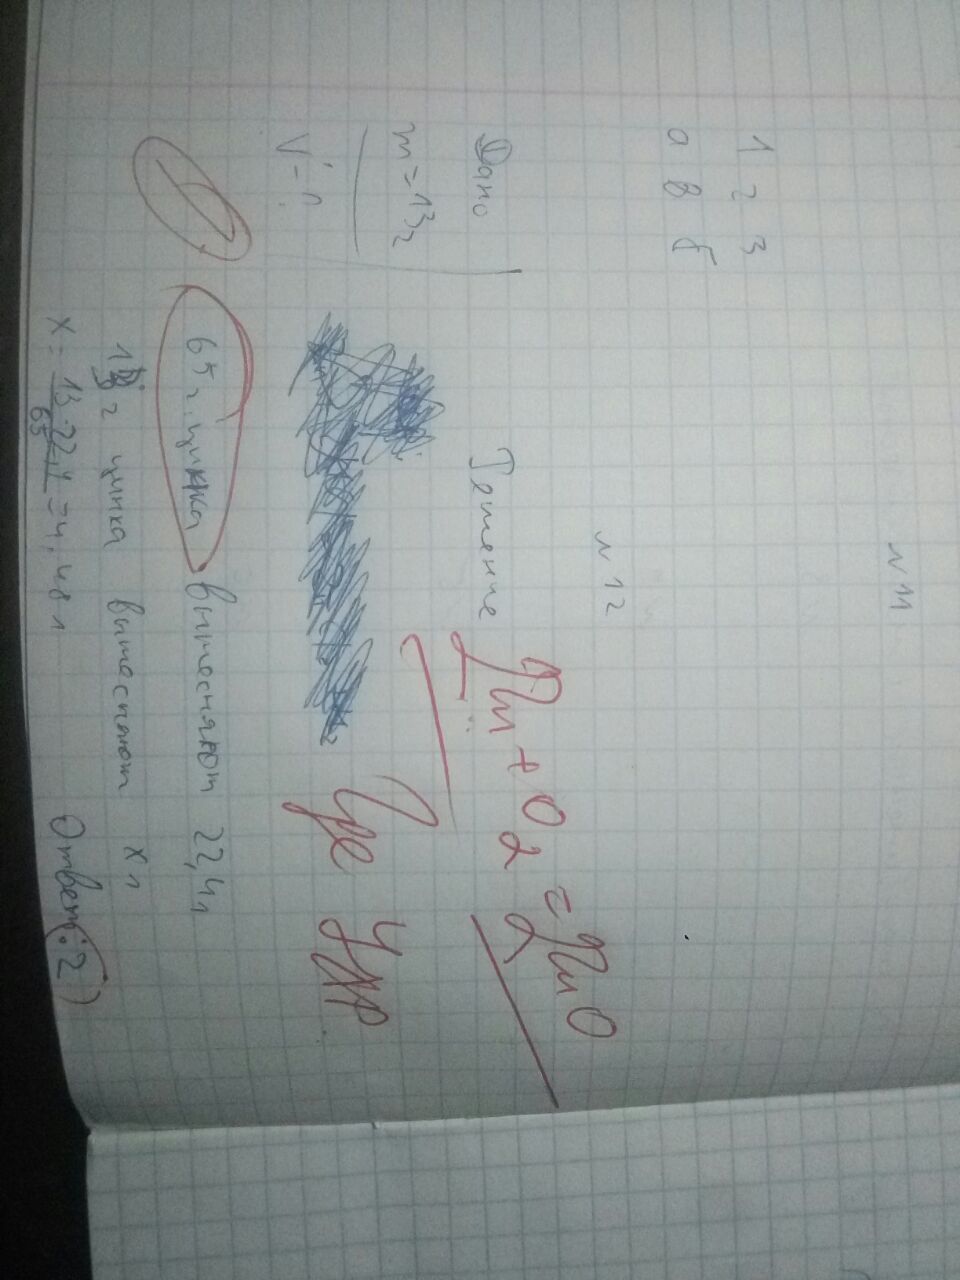 № 11
1 2 3
а в б
№ 12
Дано
Решение
2Zn + O2 = 2ZnO
m = 13г
V - ?
Где Ур
65 г. цинка вытесняют 22,4 л
13 г цинка вытесняют x л
x = 13 · 22,4 / 65 = 4,48 л
Ответ: 2)